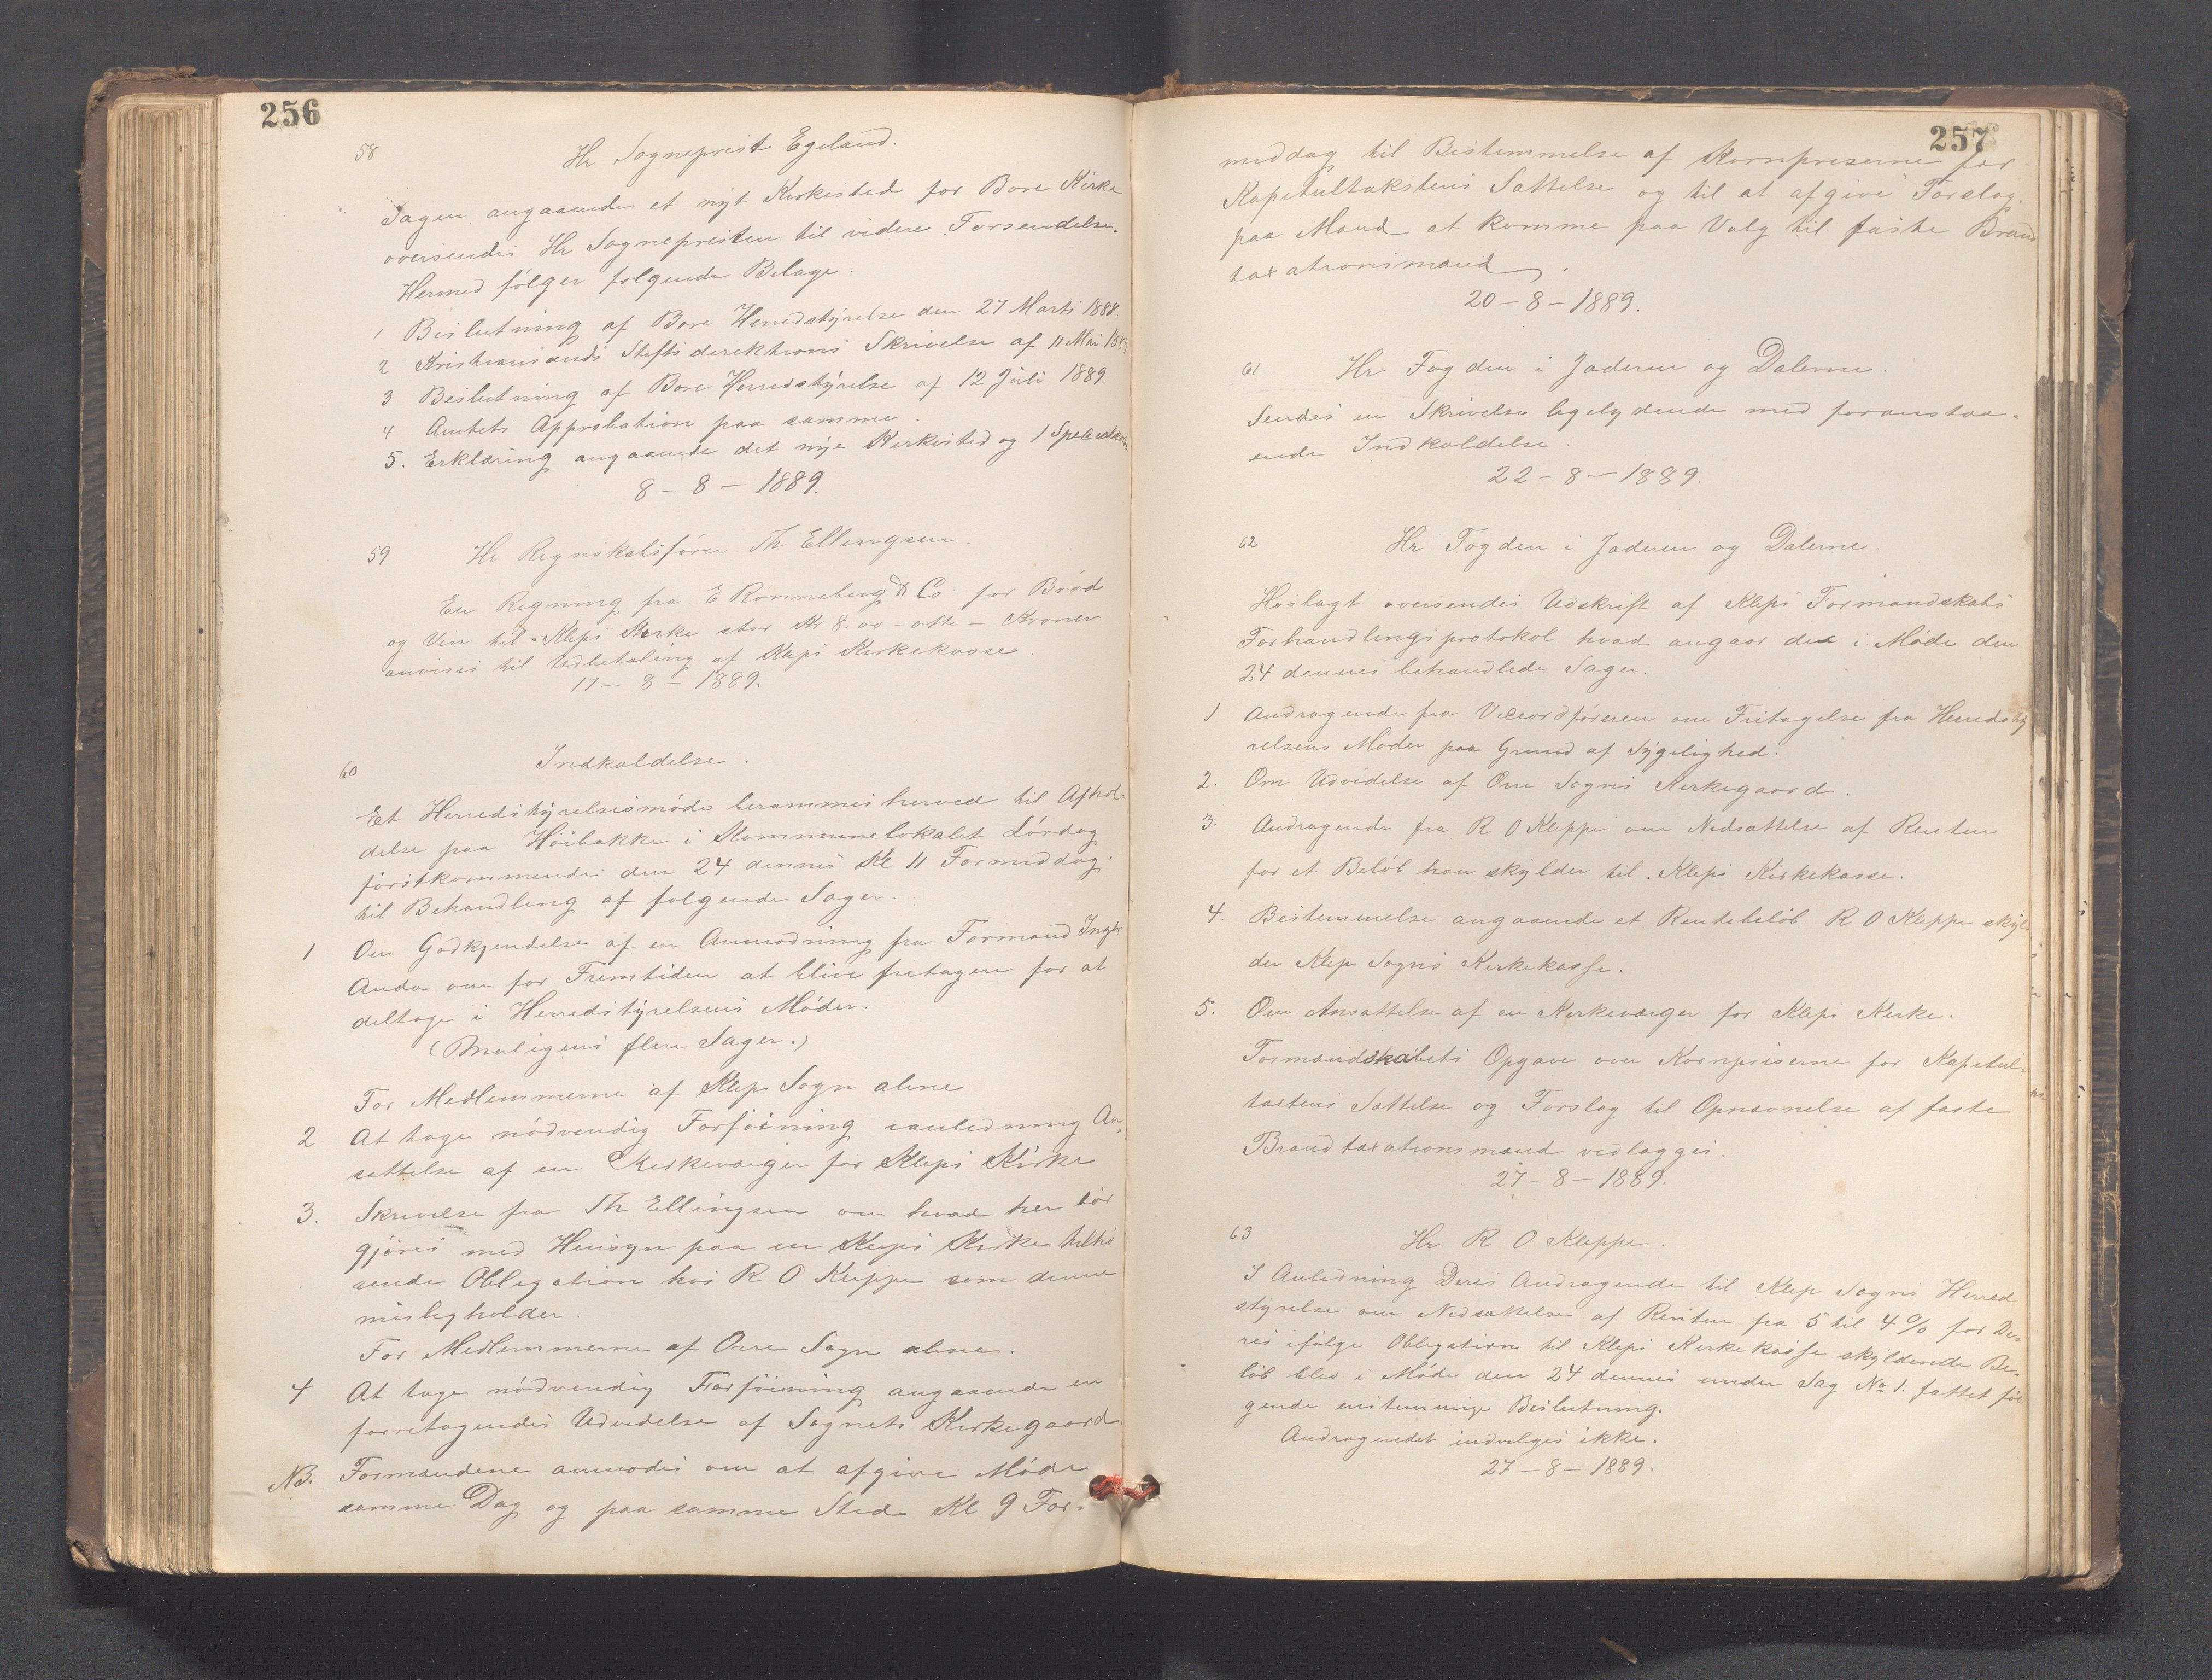 256
58 Hr Sogneprest Egeland.
Sagen angaaende et nyt Kirkested for Bore Kirke
oversendes Hr Sognepresten til videre Forsendelse.
Hermed følger følgende Bilage.
1 Beslutning af Bore Herredstyrelse den 27 Marts 1888.
2 Kristiansands Stiftsdirektions Skrivelse af 11 Mai
3 Beslutning af Bore Herredstyrelse af 12 Juli 1889.
4 Amtets Approbation paa samme.
5. Erklæring angaaende det nye Kirkested og 1
8 – 8 – 1889.
59 Hr Regnskabsfører Th Ellingsen.
En Regning fra E Rønneberg & Co. for Brød
og Vin til Kleps Kirke stor Kr 8.00 – otte – Kroner
anvises til Udbetaling af Kleps Kirkekasse.
17 – 8 – 1889.
60 Indkaldelse.
Et Herredstyrelsesmøde berammes herved til Afhol-
delse paa Höibakke i Kommunelokalet Lördag
förstkommende den 24 dennes Kl 11 Formiddag.
til Behandling af følgende Sager.
1 Om Godkjendelse af en Anmodning fra Formand
Anda om for Fremtiden at blive fritagen for at
deltage i Herredstyrelsens Møder.
(Muligens flere Sager.)
For Medlemmerne af Klep Sogn alene
2 At tage nödvendig Forföining ianledning An-
settelse af en Kirkeværger for Kleps Kirke
3. Skrivelse fra Th Ellingsen om hvad her bör
gjöres med Hensyn paa en Kleps Kirke tilhö
rende Obligation hos R O Kleppe som denne
misligholder.
For Medlemmerne af Orre Sogn alene.
4 At tage nödvendig Forföining angaaende en
forretagendes Udvidelse af Sognets Kirkegaard
NB. Formændene anmodes om at afgive Möde
samme Dag og paa samme Sted Kl 9 For-
257
middag til Bestemmelse af Kornpriserne for
Kapitultakstens Sættelse og til at afgive Forslag.
paa Mænd at komme paa Valg til faste Brand
taxationsmænd.
20 – 8 – 1889.
61 Hr Fogden i Jæderen og Dalerne.
Sendes en Skrivelse ligelydende med foranstaa-
ende Indkaldelse.
22 – 8 – 1889.
62 Hr Fogden i Jæderen og Dalerne
Hoslagt oversendes Udskrift af Kleps Formandskabs
Forhandlingsprotokol hvad angaar de i Møde den
24 dennes behandlede Sager.
1 Andragende fra Viceordføreren om Fritagelse fra Herredsty
relsens Møder paa Grund af Sygelighed.
2. Om Udvidelse af Orre Sogns Kirkegaard.
3. Andragende fra R O Kleppe om Nedsættelse af Renten
for et Beløb han skylder til Kleps Kirkekasse.
4. Bestemmelse angaaende et Rentebeløb R O Kleppe skyl
der Klep Sogns Kirkekasse.
5. Om Ansættelse af en Kirkeværger for Kleps Kirke.
Formandskabets Opgave over Kornpriserne for Kapitul-
taxtens Sættelse og Forslag til Opnævnelse af faste
Brandtaxationsmænd vedlægges.
27 – 8 – 1889.
63 Hr R O Kleppe.
I Anledning Deres Andragende til Klep Sogns Herred
styrelse om Nedsættelse af Renten fra 5 til 4 % for De-
res ifølge Obligation til Kleps Kirkekasse skyldende Be-
løb blev i Møde den 24 dennes under Sag No 1. fattet föl
gende enstemmige Beslutning.
Andragendet indvilges ikke.
27 – 8 – 1889.